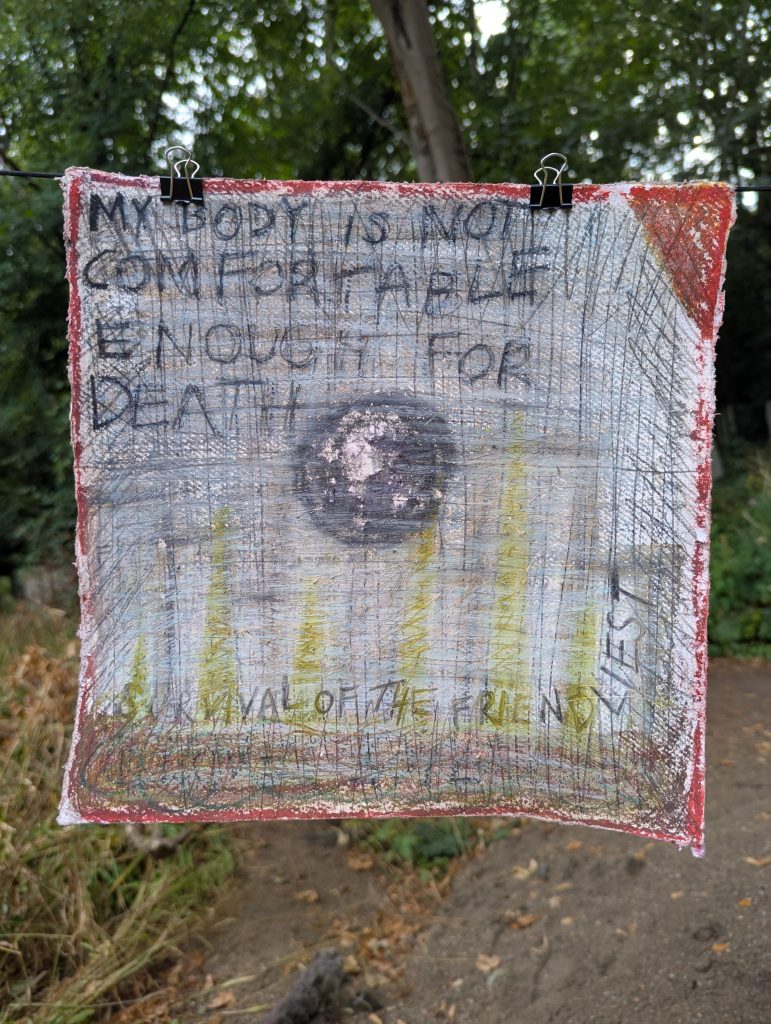 MY BODY IS NOT
COMFORTABLE
ENOUGH FOR
DEATH
SURVIVAL OF THE FRIENDVEST